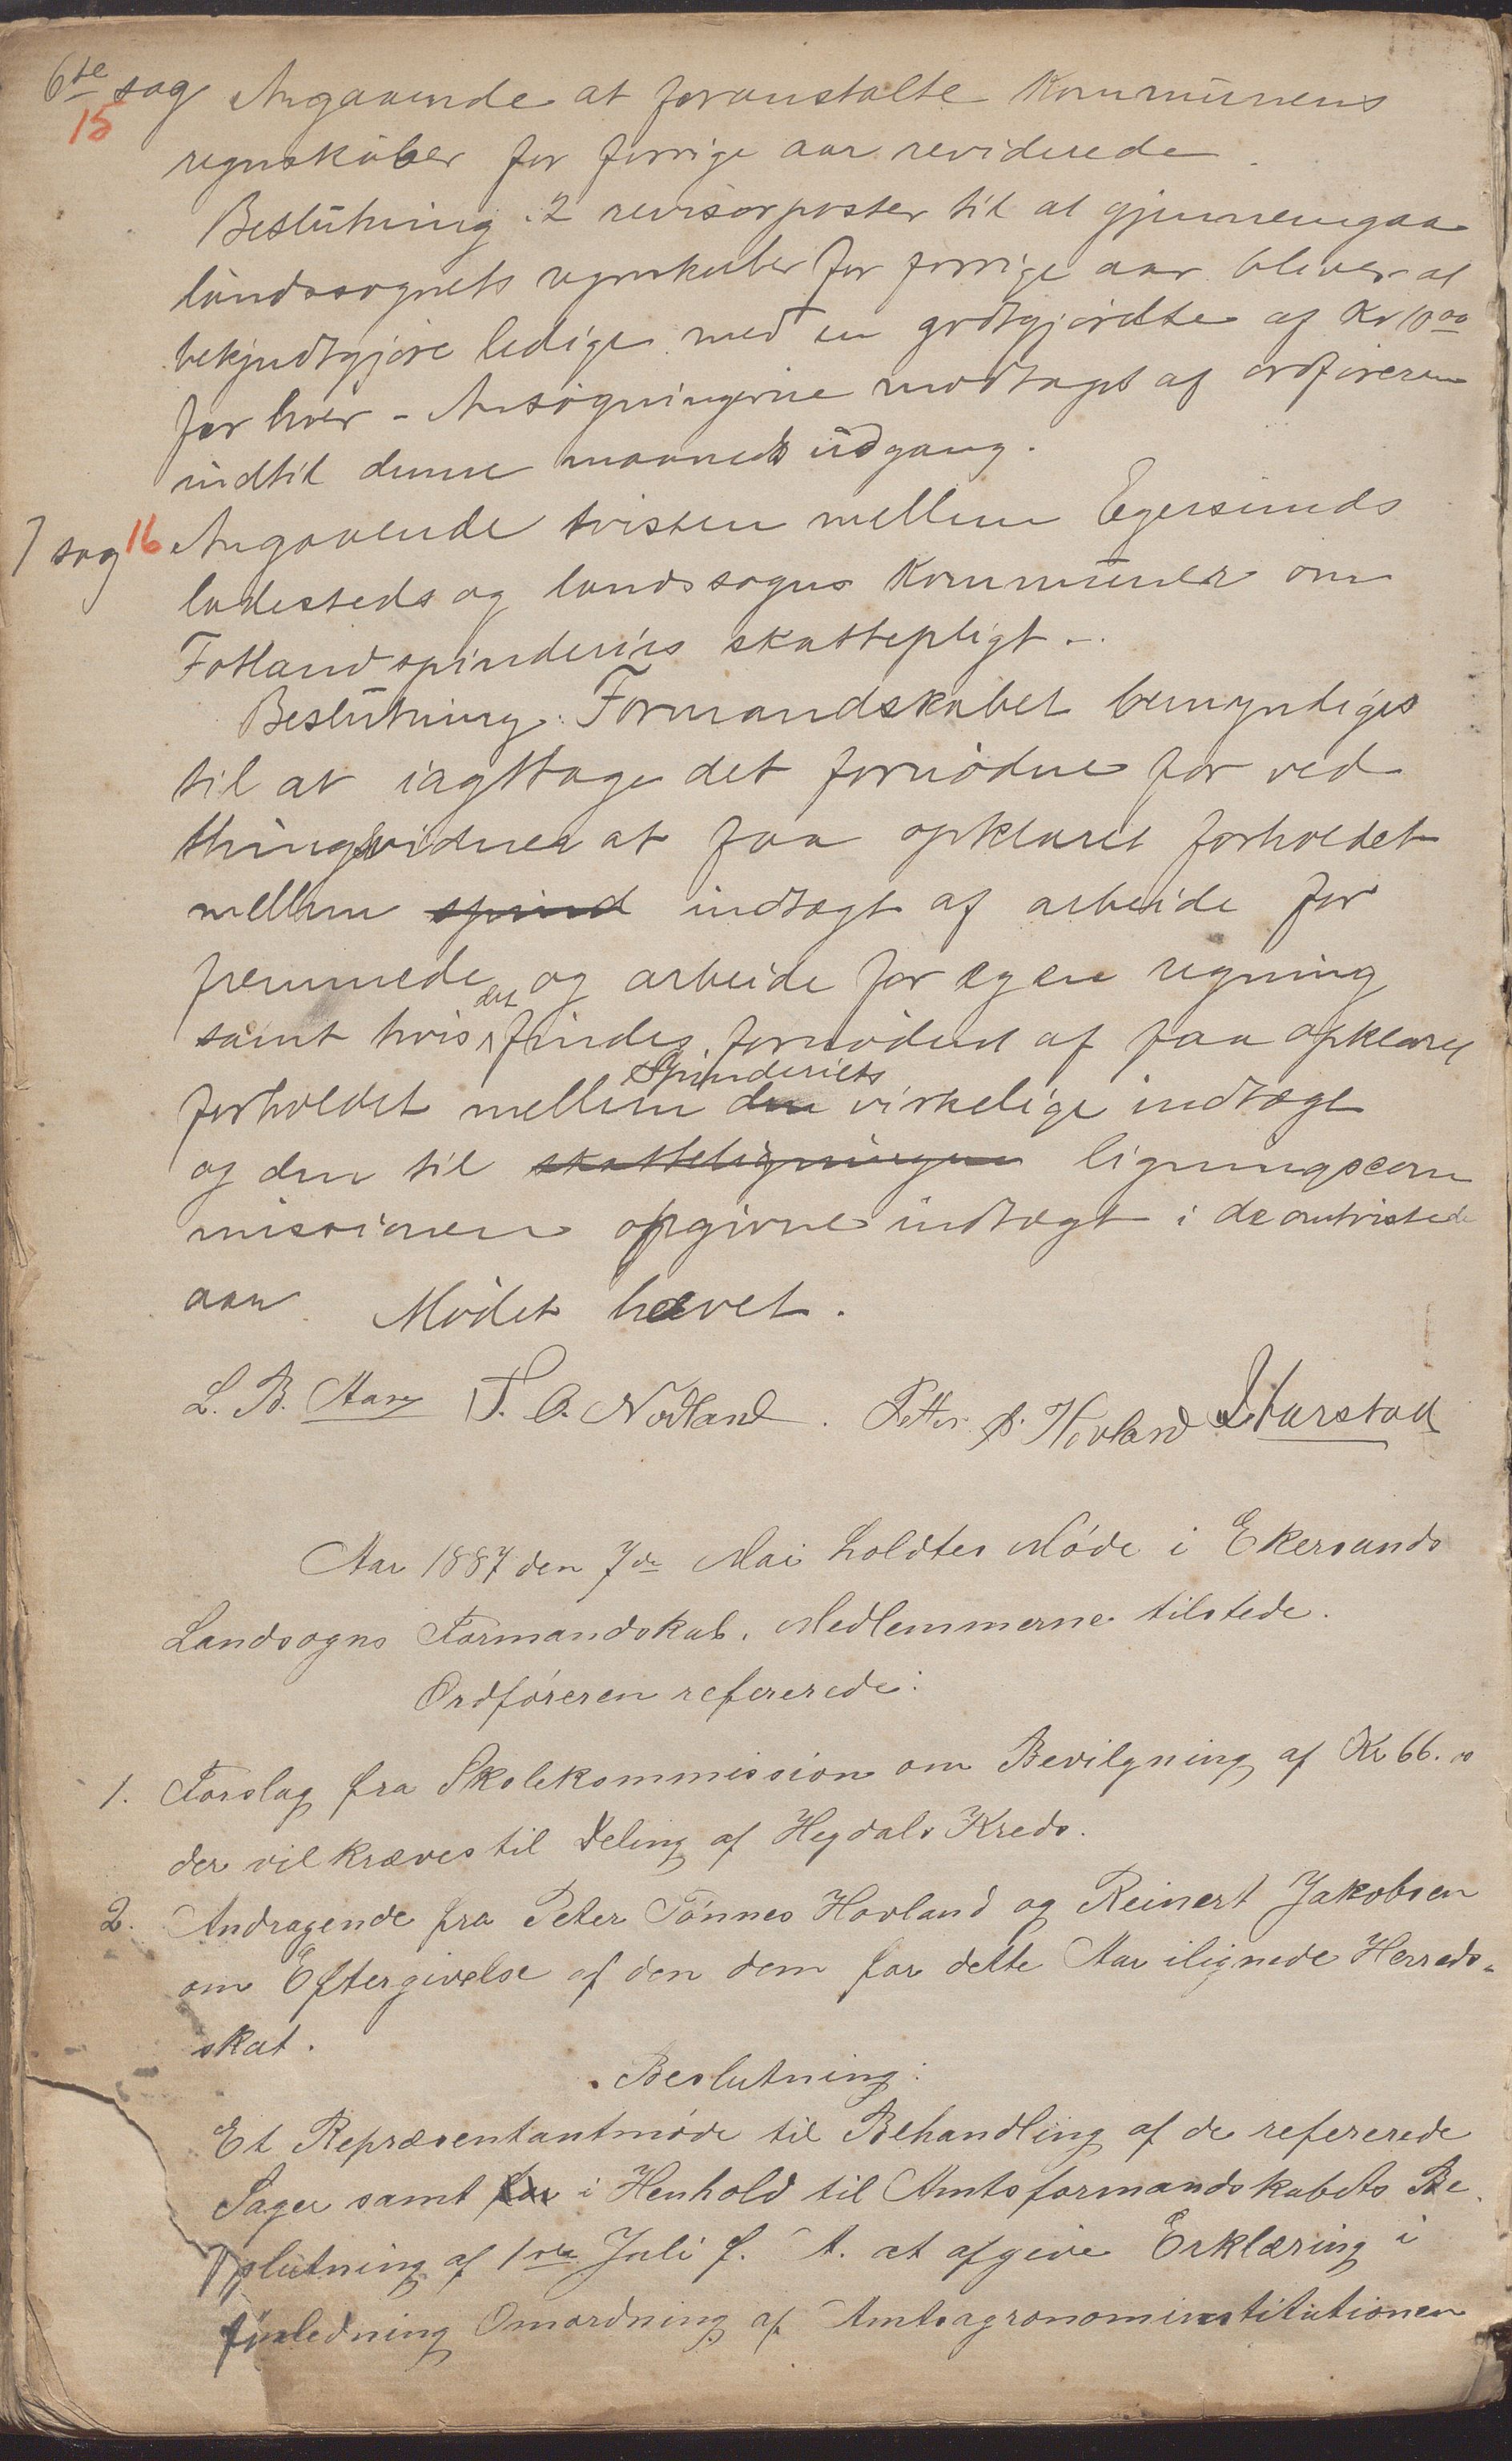 6te sag Angaaende at foranstalte Kommunens
15
regnskaber for forrige aar reviderede.
Beslutning. 2 revisorposter til at gjennemgaa
landssognets regnskaber for forrige aar bliver at
bekjendtgjøre ledige med en godtgjørelse af Kr 10 00
for hver - Ansøgningerne modtages af ordføreren
indtil denne maaneds udgang.
7 sag 16 Angaaende tvisten mellem Egersunds
ladesteds og landssogns Kommuner om
Fotland spinderies skattepligt -.
Beslutning: Formandskabet bemyndiges
til at iagttage det fornødne for ved
thingsvidner at faa opklaret forholdet
mellem spind indtægt af arbeide for
fremmede og arbeide for egen regning
samt hvis det findes fornødent at faa opklaret
forholdet mellem den Spinderiets virkelige indtægt
og den til skatteligningen ligningscom
missionen opgivne indtægt i de omtvistede
aar Mødet hævet.
L. B. Aase T. O. Nodland. Petter S. Hovland Starstad
Aar 1887 den 7de Mai holdtes Møde i Ekersunds
Landsogns Formandskab. Medlemmerne tilstede.
Ordføreren refererede:
1. Forslag fra Skolekommission om Bevilgning af Kr 66.00
der vil kræves til Deling af Hegdals Kreds.
2. Andragende fra Peter Tønnes Hovland og Reinert Jakobsen
om Eftergivelse af den dem for dette Aar ilignede Herreds-
skat.
Beslutning:
Et Repræsentantmøde til Behandling af de refererede
Sager samt for i Henhold til Amtsformandskabets Be
slutning af 1ste Juli f. A. at afgive Erklæring i
Omordning af Amtsagronominstitutionen